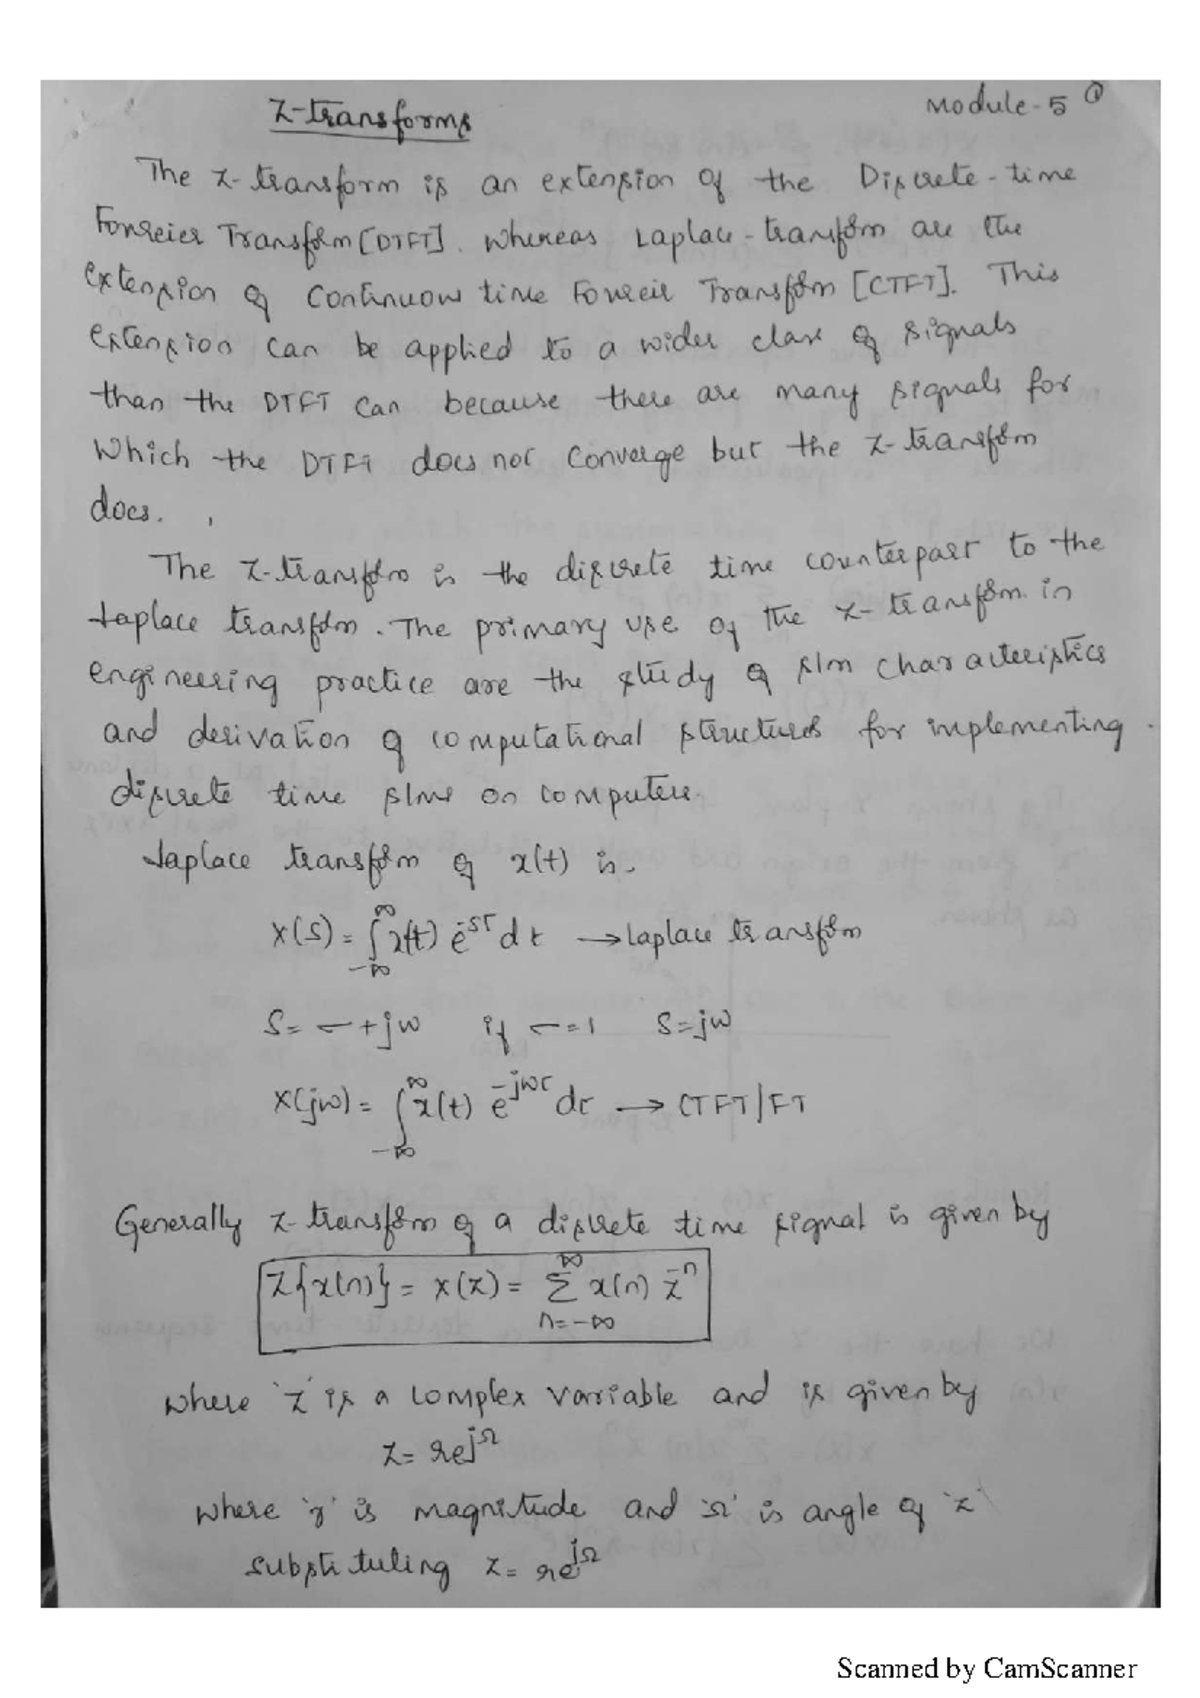 Z-transforms
Module-5 ①
The Z-transform is an extension of the Discrete-time
Foureier Transform [DTFT]. Whereas Laplace-transform are the
extension of Continuous time Foureir Transform [CTFT]. This
extension can be applied to a wider class of signals
than the DTFT can because there are many signals for
Which the DTFT does not Converge but the Z-transform
does.
The Z-transform is the discrete time counterpart to the
Laplace transform. The primary use of the Z-transform in
engineering practice are the study of s/m characteristics
and derivation of computational structures for implementing
discrete time s/ms on computers.
Laplace transform of x(t) is.
X(s) = ∫_{-∞}^{∞} x(t) e^{-st} dt → Laplace transform
S = σ + jω if σ = 1 S = jω
X(jω) = ∫_{-∞}^{∞} x(t) e^{-jωt} dt → CTFT/FT
Generally Z-transform of a discrete time signal is given by
Z{x(n)} = X(Z) = Σ_{n=-∞}^{∞} x(n) z^{-n}
where 'Z' is a complex variable and is given by
Z = re^{jΩ}
where 'r' is magnitude and 'Ω' is angle of 'z'
substituting z = re^{jΩ}
Scanned by CamScanner